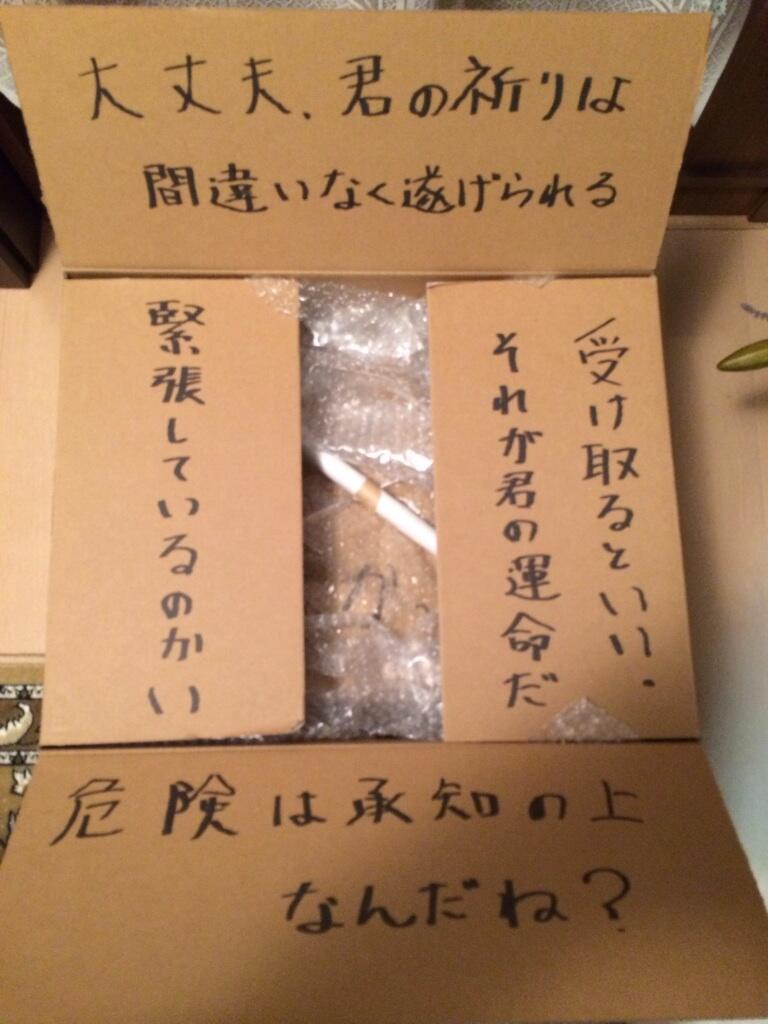 大丈夫、君の祈りは
間違いなく遂げられる
緊張しているのかい
受け取るといい。
それが君の運命だ
危険は承知の上
なんだね？